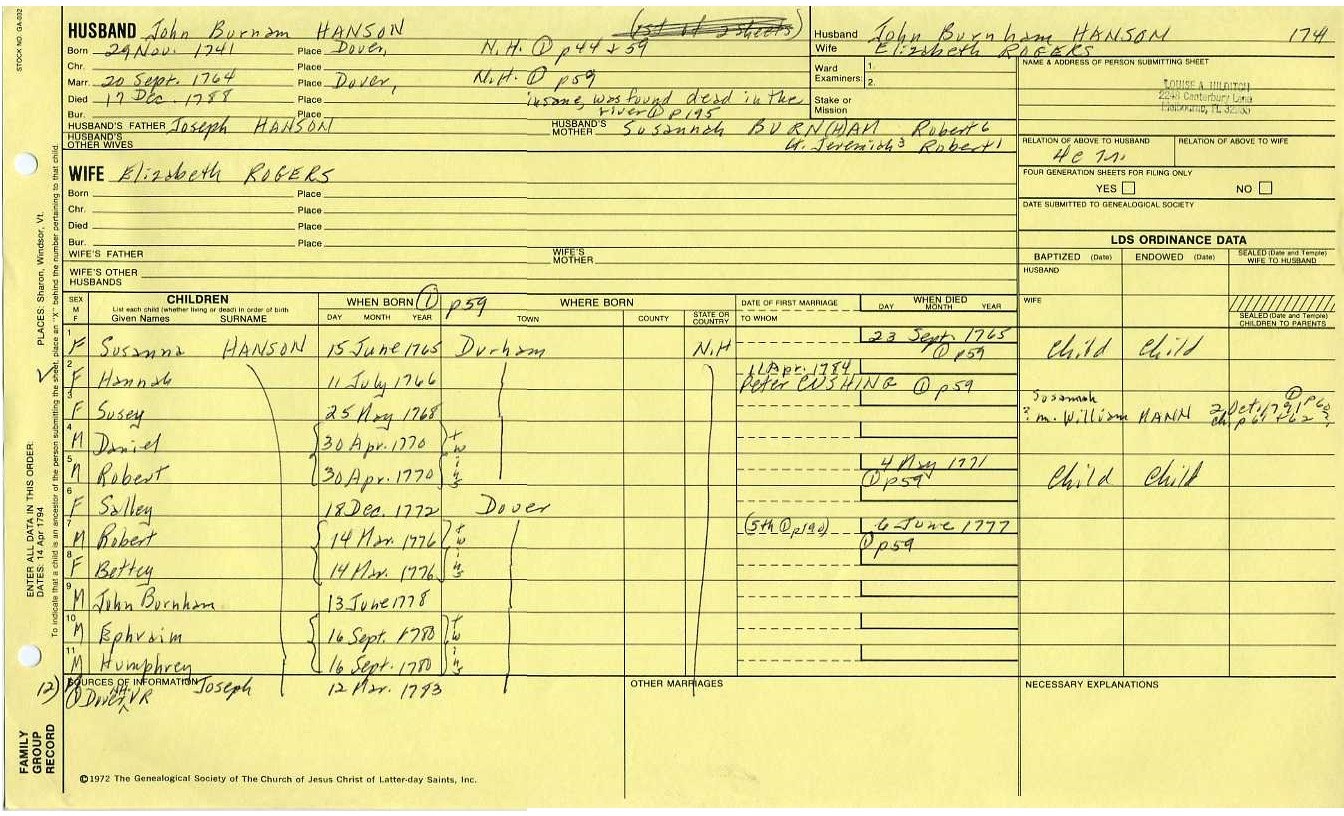 STOCK NO. GA-032
HUSBAND John Burnam HANSON (1st of 2 sheets)
Born 29 Nov. 1741 Place Dover, N.H. ① p44 + 59
Chr. Place
Marr. 20 Sept. 1764 Place Dover, N.H. ① p59
Died 17 Dec. 1788 Place insane, was found dead in the
Bur. Place river ① p195
HUSBAND'S FATHER Joseph HANSON HUSBAND'S MOTHER Susannah BURN(H)AM Robert 6
HUSBAND'S OTHER WIVES Lt. Jeremiah 3 Robert 1
Husband John Burnham HANSON 1741
Wife Elizabeth ROGERS
Ward 1.
Examiners: 2.
Stake or
Mission
NAME & ADDRESS OF PERSON SUBMITTING SHEET
LOUISE A. HILDITCH
2248 Canterbury Lane
Melbourne, FL
RELATION OF ABOVE TO HUSBAND RELATION OF ABOVE TO WIFE
FOUR GENERATION SHEETS FOR FILING ONLY
YES NO
DATE SUBMITTED TO GENEALOGICAL SOCIETY
WIFE Elizabeth ROGERS
Born Place
Chr. Place
Died Place
Bur. Place
WIFE'S FATHER WIFE'S MOTHER
WIFE'S OTHER HUSBANDS
LDS ORDINANCE DATA
BAPTIZED (Date) ENDOWED (Date) SEALED (Date and Temple) WIFE TO HUSBAND
HUSBAND
WIFE
SEALED (Date and Temple) CHILDREN TO PARENTS
SEX M F CHILDREN WHEN BORN ① p59 WHERE BORN DATE OF FIRST MARRIAGE WHEN DIED
List each child (whether living or dead) in order of birth
Given Names SURNAME DAY MONTH YEAR TOWN COUNTY STATE OR COUNTRY TO WHOM DAY MONTH YEAR
1 F Susanna HANSON 15 June 1765 Durham N.H 23 Sept. 1765 ① p59 Child Child
2 F Hannah 11 July 1766 11 Apr. 1784 Peter CUSHING ① p59
3 F Susey 25 May 1768 Susannah ? m. William HANN 2 Oct. 1791 ① p60 ch. p61 + 62
4 M Daniel 30 Apr. 1770 twins
5 M Robert 30 Apr. 1770 4 May 1771 ① p59 Child Child
6 F Salley 18 Dec. 1772 Dover
7 M Robert 14 Mar. 1776 twins (5th ① p190) 6 June 1777 ① p59
8 F Bettey 14 Mar. 1776
9 M John Burnham 13 June 1778
10 M Ephraim 16 Sept. 1780 twins
11 M Humphrey 16 Sept. 1780
12) M Joseph 12 Mar. 1783
SOURCES OF INFORMATION OTHER MARRIAGES NECESSARY EXPLANATIONS
① Dover, NH. VR
©1972 The Genealogical Society of The Church of Jesus Christ of Latter-day Saints, Inc.
FAMILY
GROUP
RECORD
ENTER ALL DATA IN THIS ORDER:
DATES: 14 Apr 1794 PLACES: Sharon, Windsor, Vt.
To indicate that a child is an ancestor of the person submitting the sheet, place an "X" behind the number pertaining to that child.